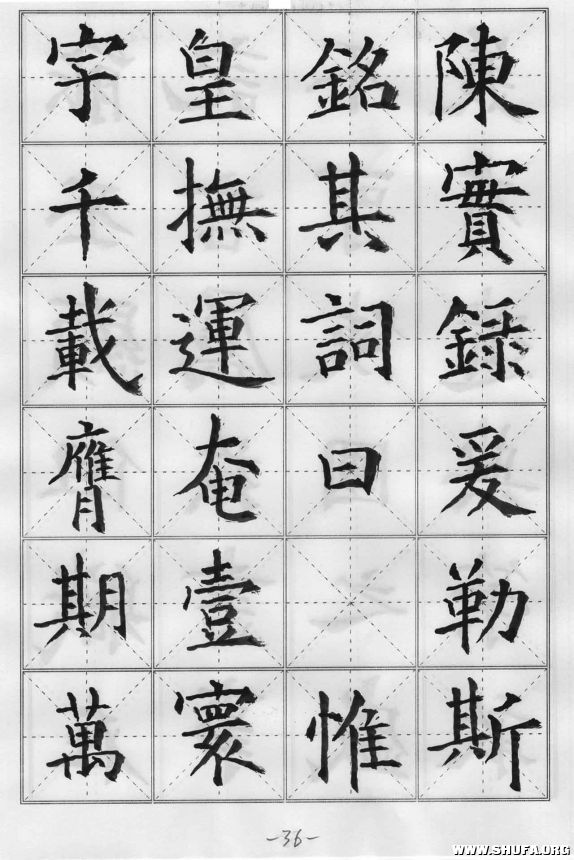 陳實録爰勒斯
銘其詞曰 惟
皇撫運奄壹寰
宇千載膺期萬
-36-
WWW.SHUFA.ORG